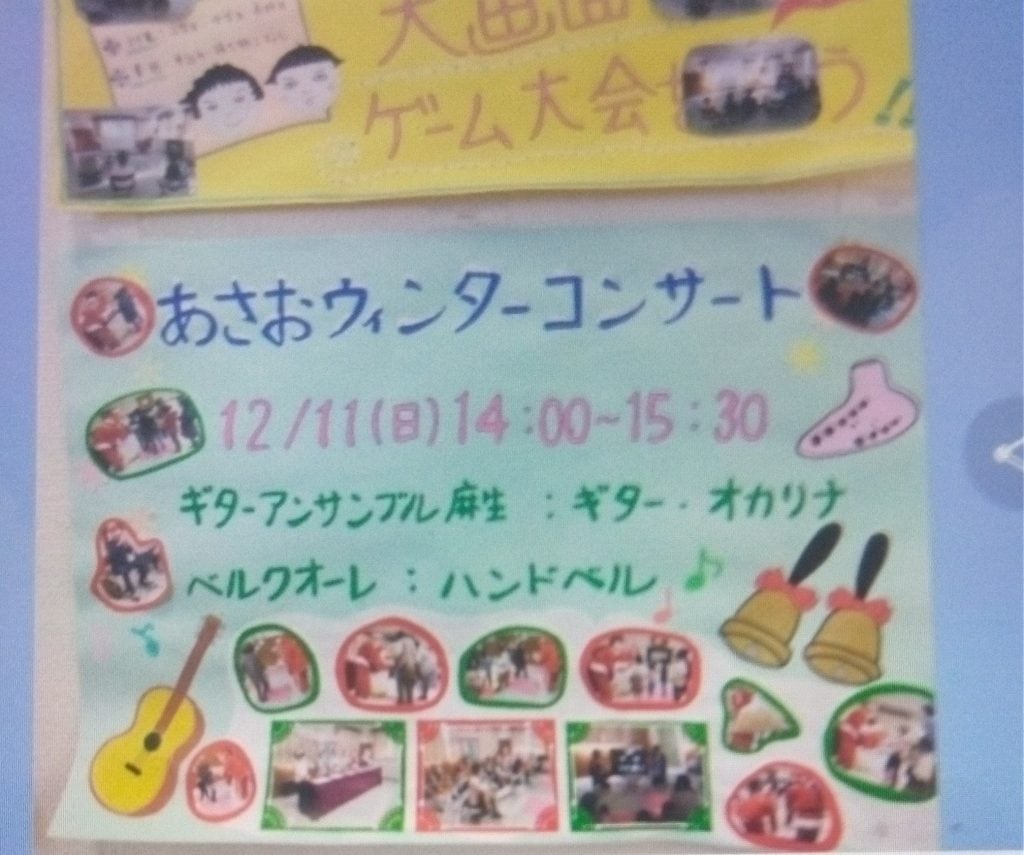 大画面
ゲーム大会
う!!
あさおウィンターコンサート
12/11(日)14:00~15:30
ギターアンサンブル麻生 : ギター・オカリナ
ベルクオーレ : ハンドベル